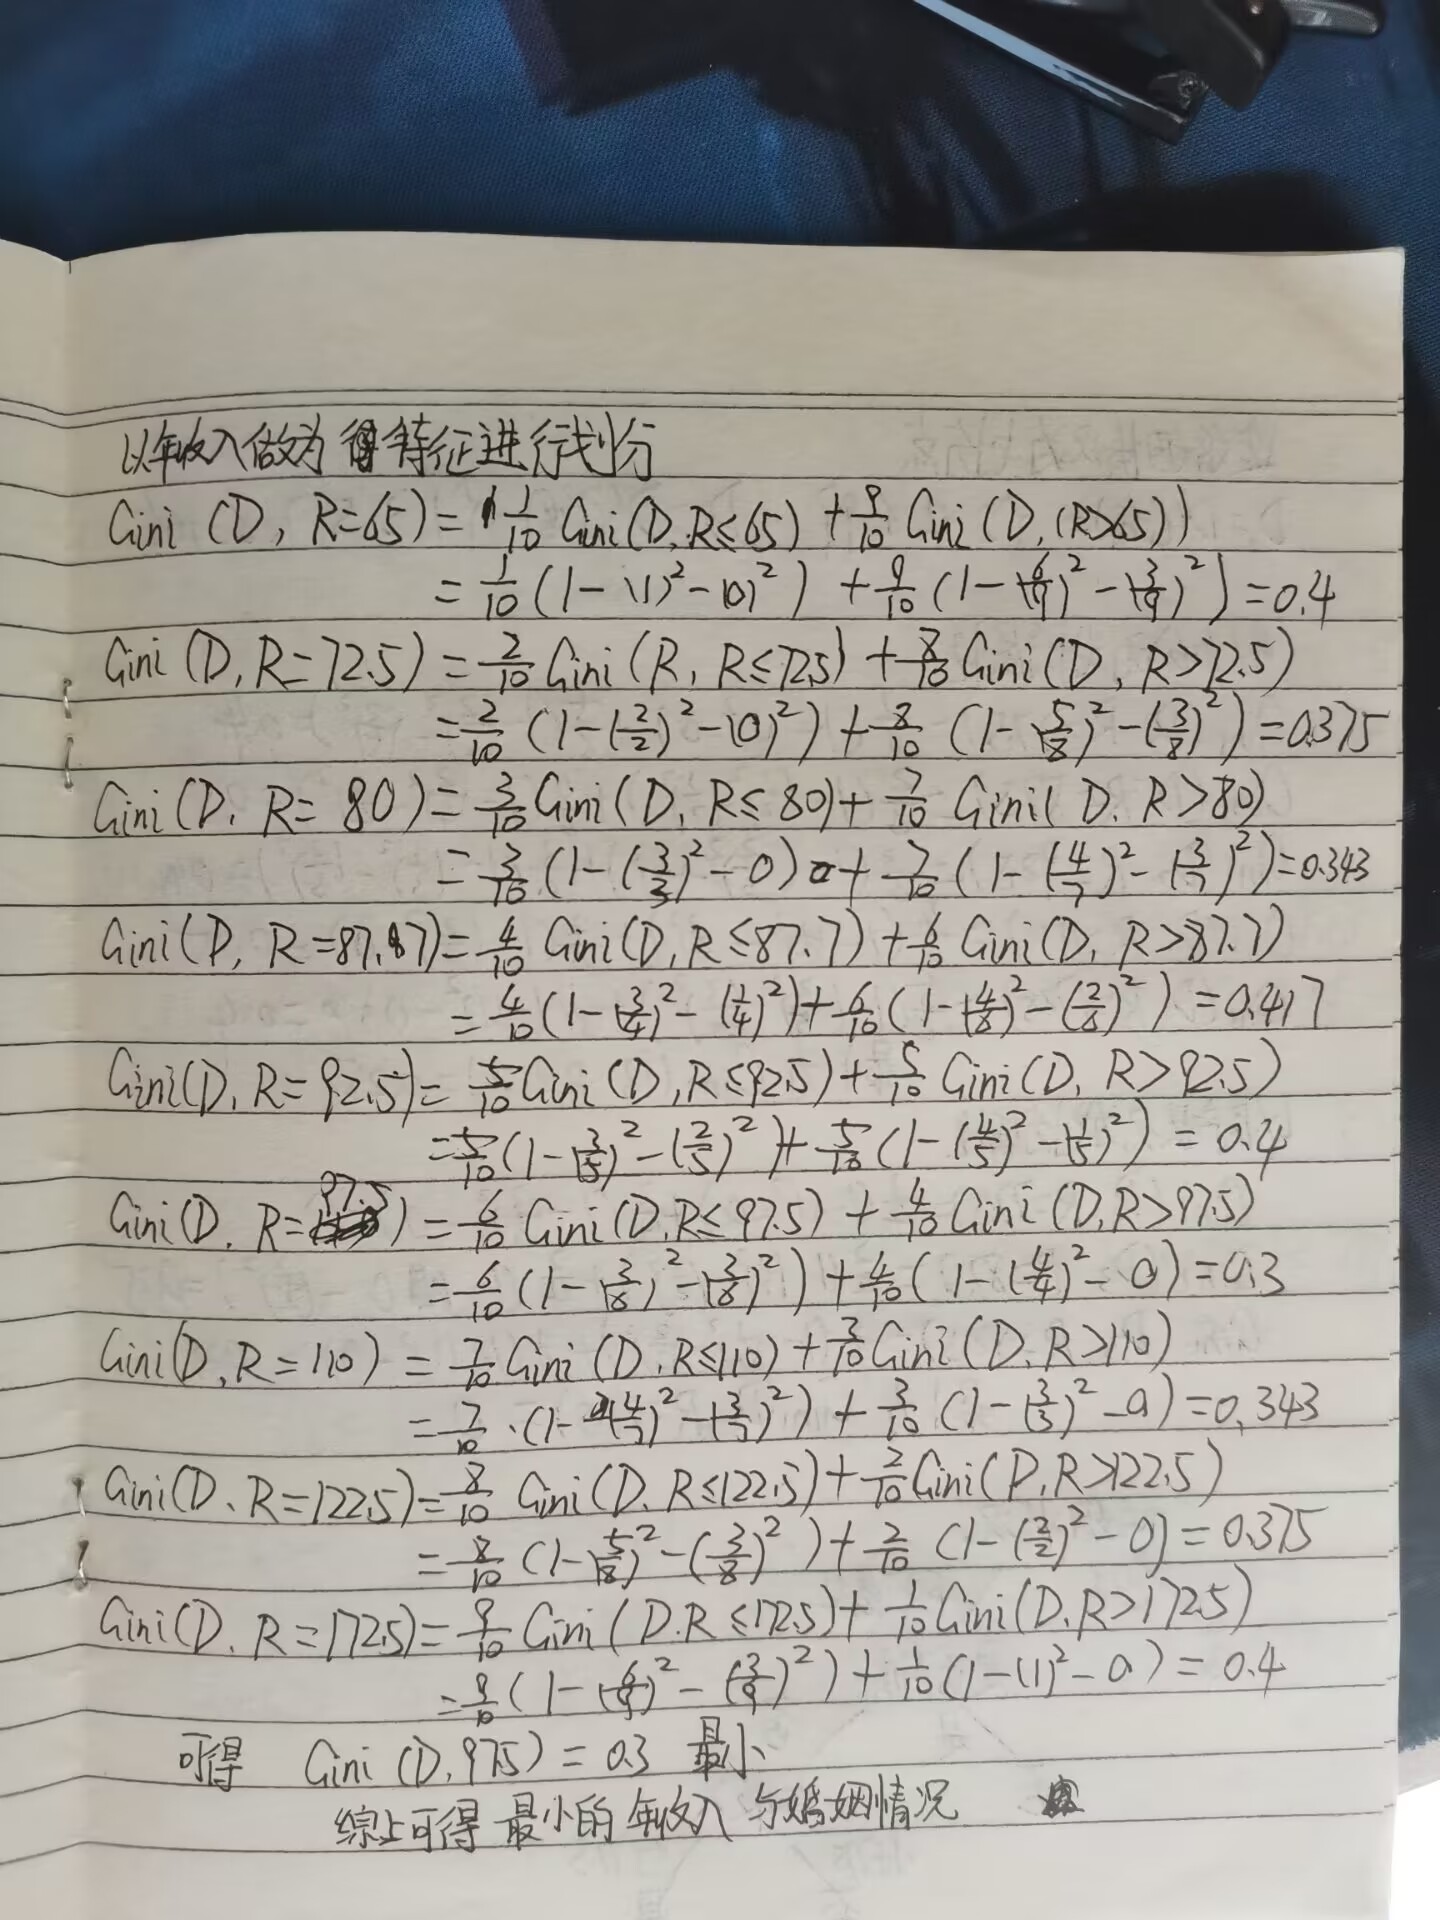 以年收入做为特征进行划分
Gini (D, R=65) = 1/10 Gini(D, R≤65) + 9/10 Gini (D, (R>65))
= 1/10 (1-(1)²-(0)²) + 9/10 (1-(6/9)²-(3/9)²) = 0.4
Gini (D, R=72.5) = 2/10 Gini (R, R≤72.5) + 8/10 Gini (D, R>72.5)
= 2/10 (1-(2/2)²-(0)²) + 8/10 (1-(5/8)²-(3/8)²) = 0.375
Gini (D, R=80) = 3/10 Gini (D, R≤80) + 7/10 Gini (D, R>80)
= 3/10 (1-(3/3)²-0) + 7/10 (1-(4/7)²-(3/7)²) = 0.343
Gini (D, R=87.87) = 4/10 Gini (D, R≤87.7) + 6/10 Gini (D, R>87.7)
= 4/10 (1-(3/4)²-(1/4)²) + 6/10 (1-(4/6)²-(2/6)²) = 0.417
Gini (D, R=92.5) = 5/10 Gini (D, R≤92.5) + 5/10 Gini (D, R>92.5)
= 5/10 (1-(3/5)²-(2/5)²) + 5/10 (1-(4/5)²-(1/5)²) = 0.4
Gini (D, R=97.5) = 6/10 Gini (D, R≤97.5) + 4/10 Gini (D, R>97.5)
= 6/10 (1-(3/6)²-(3/6)²) + 4/10 (1-(4/4)²-0) = 0.3
Gini (D, R=110) = 7/10 Gini (D, R≤110) + 3/10 Gini (D, R>110)
= 7/10 · (1-(4/7)²-(3/7)²) + 3/10 (1-(3/3)²-0) = 0.343
Gini (D, R=122.5) = 8/10 Gini (D, R≤122.5) + 2/10 Gini (D, R>122.5)
= 8/10 (1-(5/8)²-(3/8)²) + 2/10 (1-(2/2)²-0) = 0.375
Gini (D, R=172.5) = 9/10 Gini (D, R≤172.5) + 1/10 Gini (D, R>172.5)
= 9/10 (1-(6/9)²-(3/9)²) + 1/10 (1-(1)²-0) = 0.4
可得 Gini (D, 97.5) = 0.3 最小
综上可得 最小的 年收入 与婚姻情况